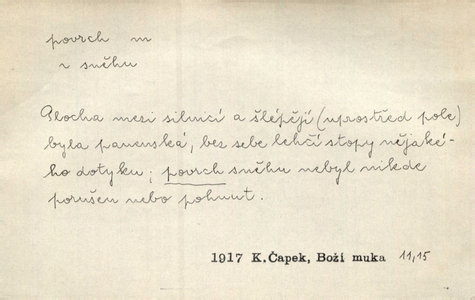 povrch m
v sněhu
Plocha mezi silnicí a šlépějí (uprostřed pole)
byla panenská, bez sebe lehčí stopy nějaké-
ho dotyku; povrch sněhu nebyl nikde
porušen nebo pohnut.
1917 K.Čapek, Boží muka 11,15